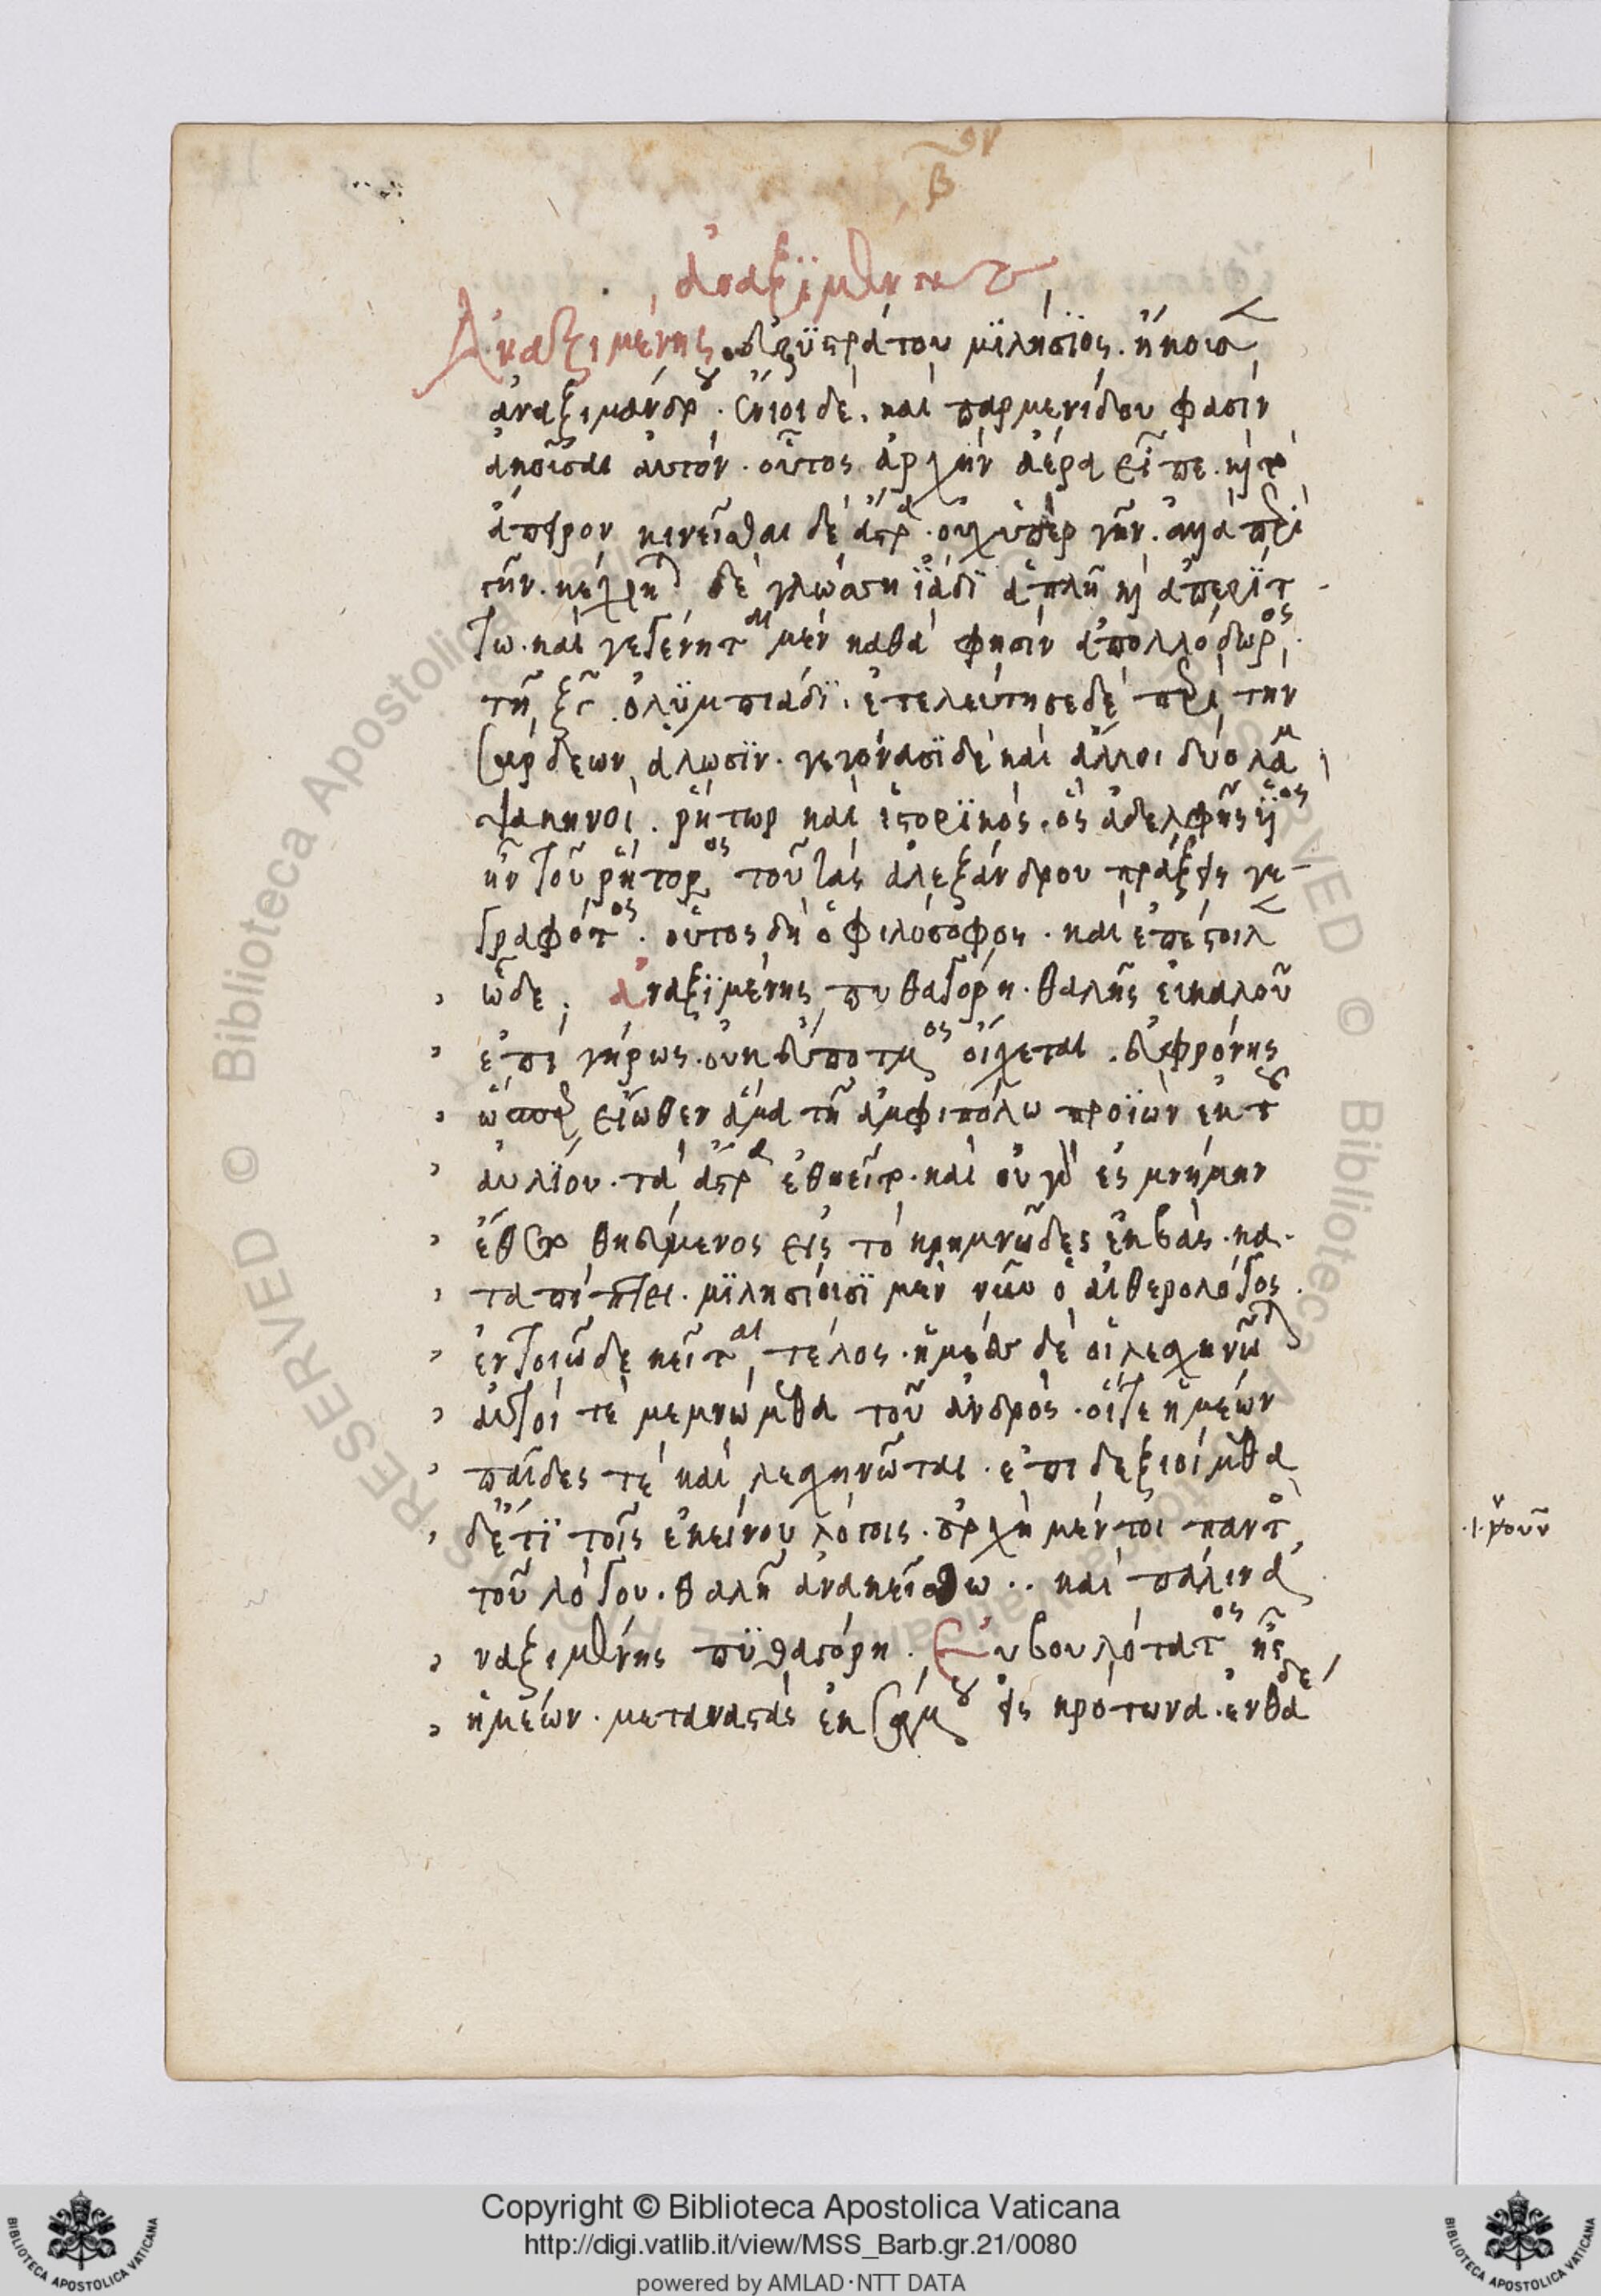 β
ἀναξϊμένης
Ἀναξιμένης εὐρϋστράτου μϊλήσϊος. ἤκουσ
ἀναξιμάνδρου. ἔνιοι δὲ. καὶ παρμενίδου φασὶν
ἀκοῦσαι ἀυτόν. οὗτος ἀρχὴν ἀέρα εἶπε. κὶ τὸ
ἄπειρον κινεῖσθαι δὲ ἄστρα. οὐχ ὑπὲρ γῆν. ἀλλὰ περὶ
γῆν. κέχρηται δὲ γλώσση ϊάδϊ ἁπλῆ κὶ ἀπερίτ
τω. καὶ γεγένηται μὲν καθά φησιν ἀπολλόδωρος.
τῆ ξγ ὀλϋμπιάδϊ. ἐτελεύτησε δὲ περὶ τὴν
σάρδεων ἅλωσϊν. γεγόνασϊ δὲ καὶ ἄλλοι δύο λαμ
ψακηνοὶ. ῥήτωρ καὶ ἱστορϊκός. ὃς ἀδελφῆς ϋἱος
ἦν τοῦ ῥήτορος τοῦ τὰς ἀλεξάνδρου πράξεις γε-
γραφότος. οὗτος δὴ ὁ φιλόσοφος. καὶ ἐπέστειλ
ὧδε. ἀναξϊμένης πυθαγόρη. θαλῆς ἐικαλοῦ
ἐπὶ γήρως. ουκ εὔποτμος οἴχεται. εὐφρόνης
ὥσπερ εἴωθεν ἅμα τῆ ἀμφιπόλω προϊὼν ἐκ του
ἀυλϊου. τὰ ἄστρα ἐθηεῖτο. καὶ ὀυ γὰρ ἐς μνήμην
ἔθετο θηεύμενος εἰς τὸ κρημνῶδες ἐκβὰς. κα-
ταπίπτει. μϊλησίοισϊ μέν νῦν ὁ ἀιθερολόγος
ἐν τοιῶδε κεῖται τέλος. ἡμεῖς δὲ οἱ λεσχηνῶται
ἀυτοί τὲ μεμνώμεθα τοῦ ἀνδρὸς. οἵτε ἡμέων
παῖδες τὲ καὶ λεσχηνῶται. ἐπιδεξιοίμεθα
δ' ἔτϊ τοῖς ἐκείνου λόγοις. ἀρχὴ μέντοι παντὸς
τοῦ λόγου. θαλῆ ἀνακείσθω.. καὶ πάλιν ἀ
ναξιμένης πϋθαγόρη. Ἐυβουλότατος ἦς
ἡμέων. μεταναστὰς ἐκ σάμου ἐς κρότωνα. ἐνθάδε
Copyright © Biblioteca Apostolica Vaticana
http://digi.vatlib.it/view/MSS_Barb.gr.21/0080
powered by AMLAD·NTT DATA